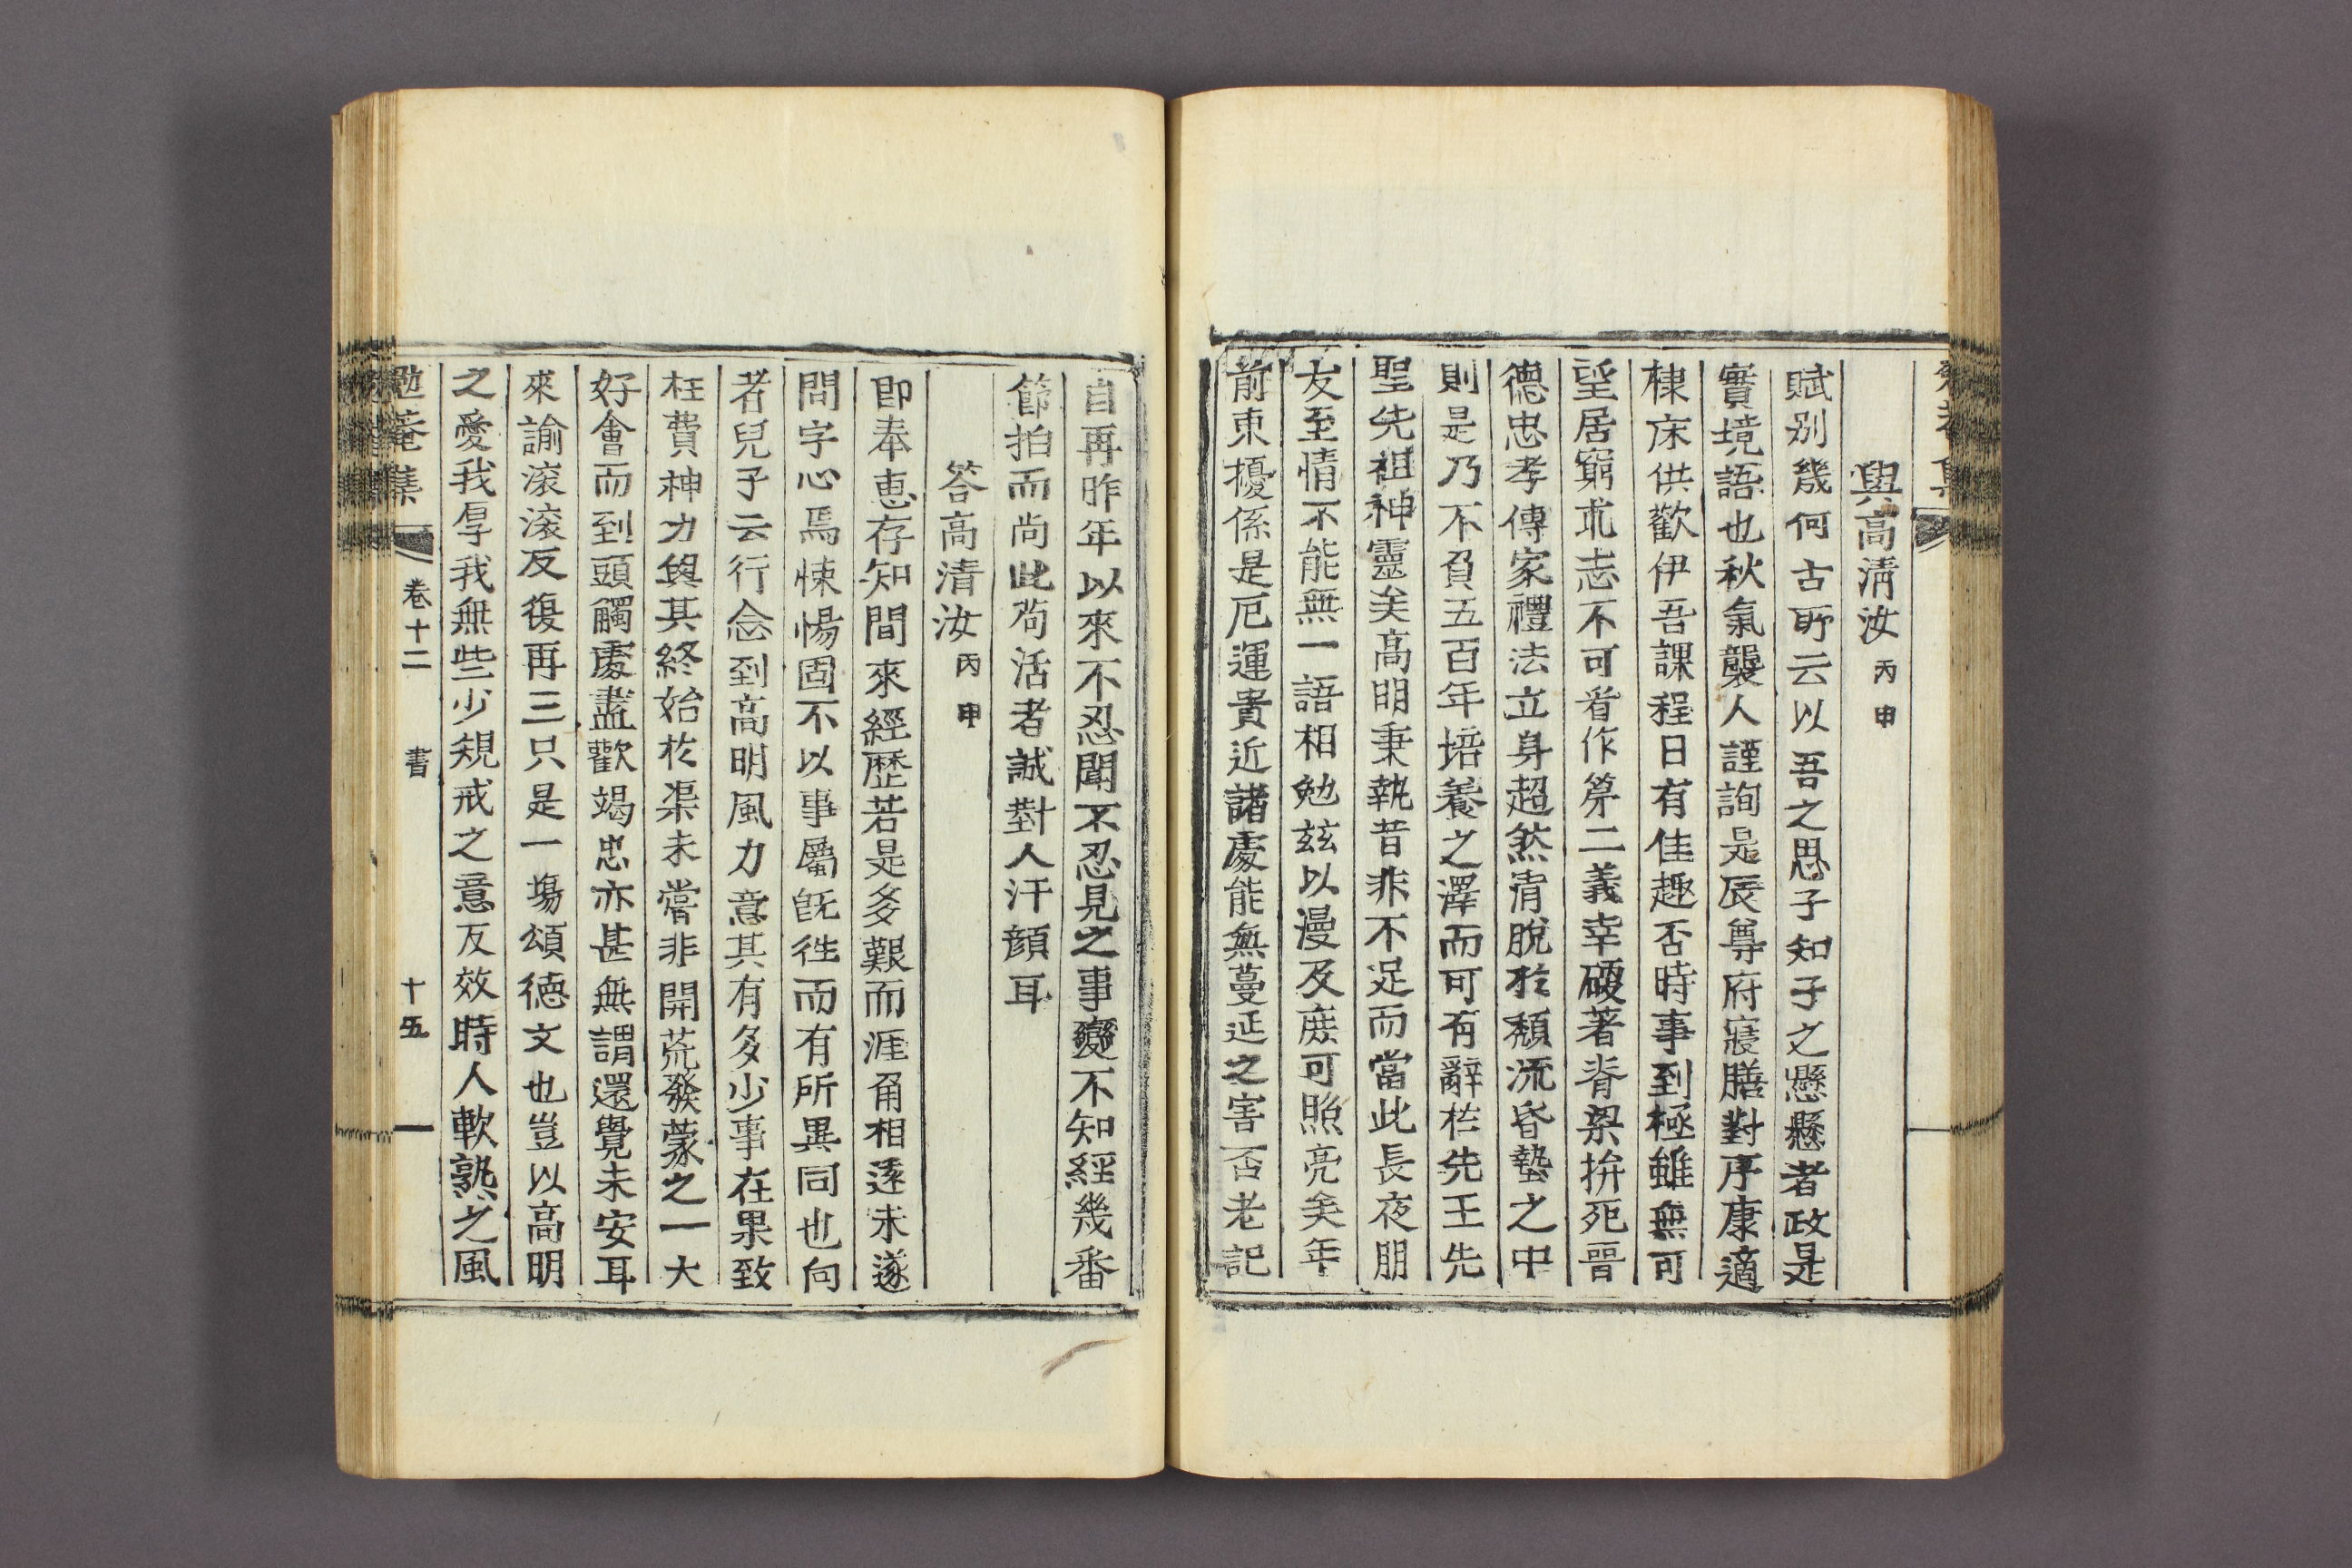 與高淸汝 丙申
賦別幾何古所云以吾之思子知子之懸懸者政是
實境語也秋氣襲人謹詢是辰尊府寢膳對序康適
棣床供歡伊吾課程日有佳趣否時事到極雖無可
望居窮求志不可看作第二義幸硬著脊梁拚死晋
德忠孝傳家禮法立身超然淸脫於頹流昏墊之中
則是乃不負五百年培養之澤而可有辭於先王先
聖先祖神靈矣高明秉執昔非不足而當此長夜朋
友至情不能無一語相勉玆以漫及庶可照亮矣年
前東擾係是厄運貴近諸處能無蔓延之害否老記
自再昨年以來不忍聞不忍見之事變不知經幾番
節拍而尚此苟活者誠對人汗顔耳
答高清汝 丙申
卽奉惠存知間來經歷若是多艱而涯角相逐未遂
問字心焉悚惕固不以事屬旣徃而有所異同也向
者兒子云行念到高明風力意其有多少事在果致
枉費神力與其終始於渠未嘗非開荒發蒙之一大
好會而到頭觸處盡歡竭忠亦甚無謂還覺未安耳
來諭滚滚反復再三只是一塲頌德文也豈以高明
之愛我厚我無些少規戒之意反效時人軟熟之風
卷十二 書 十五